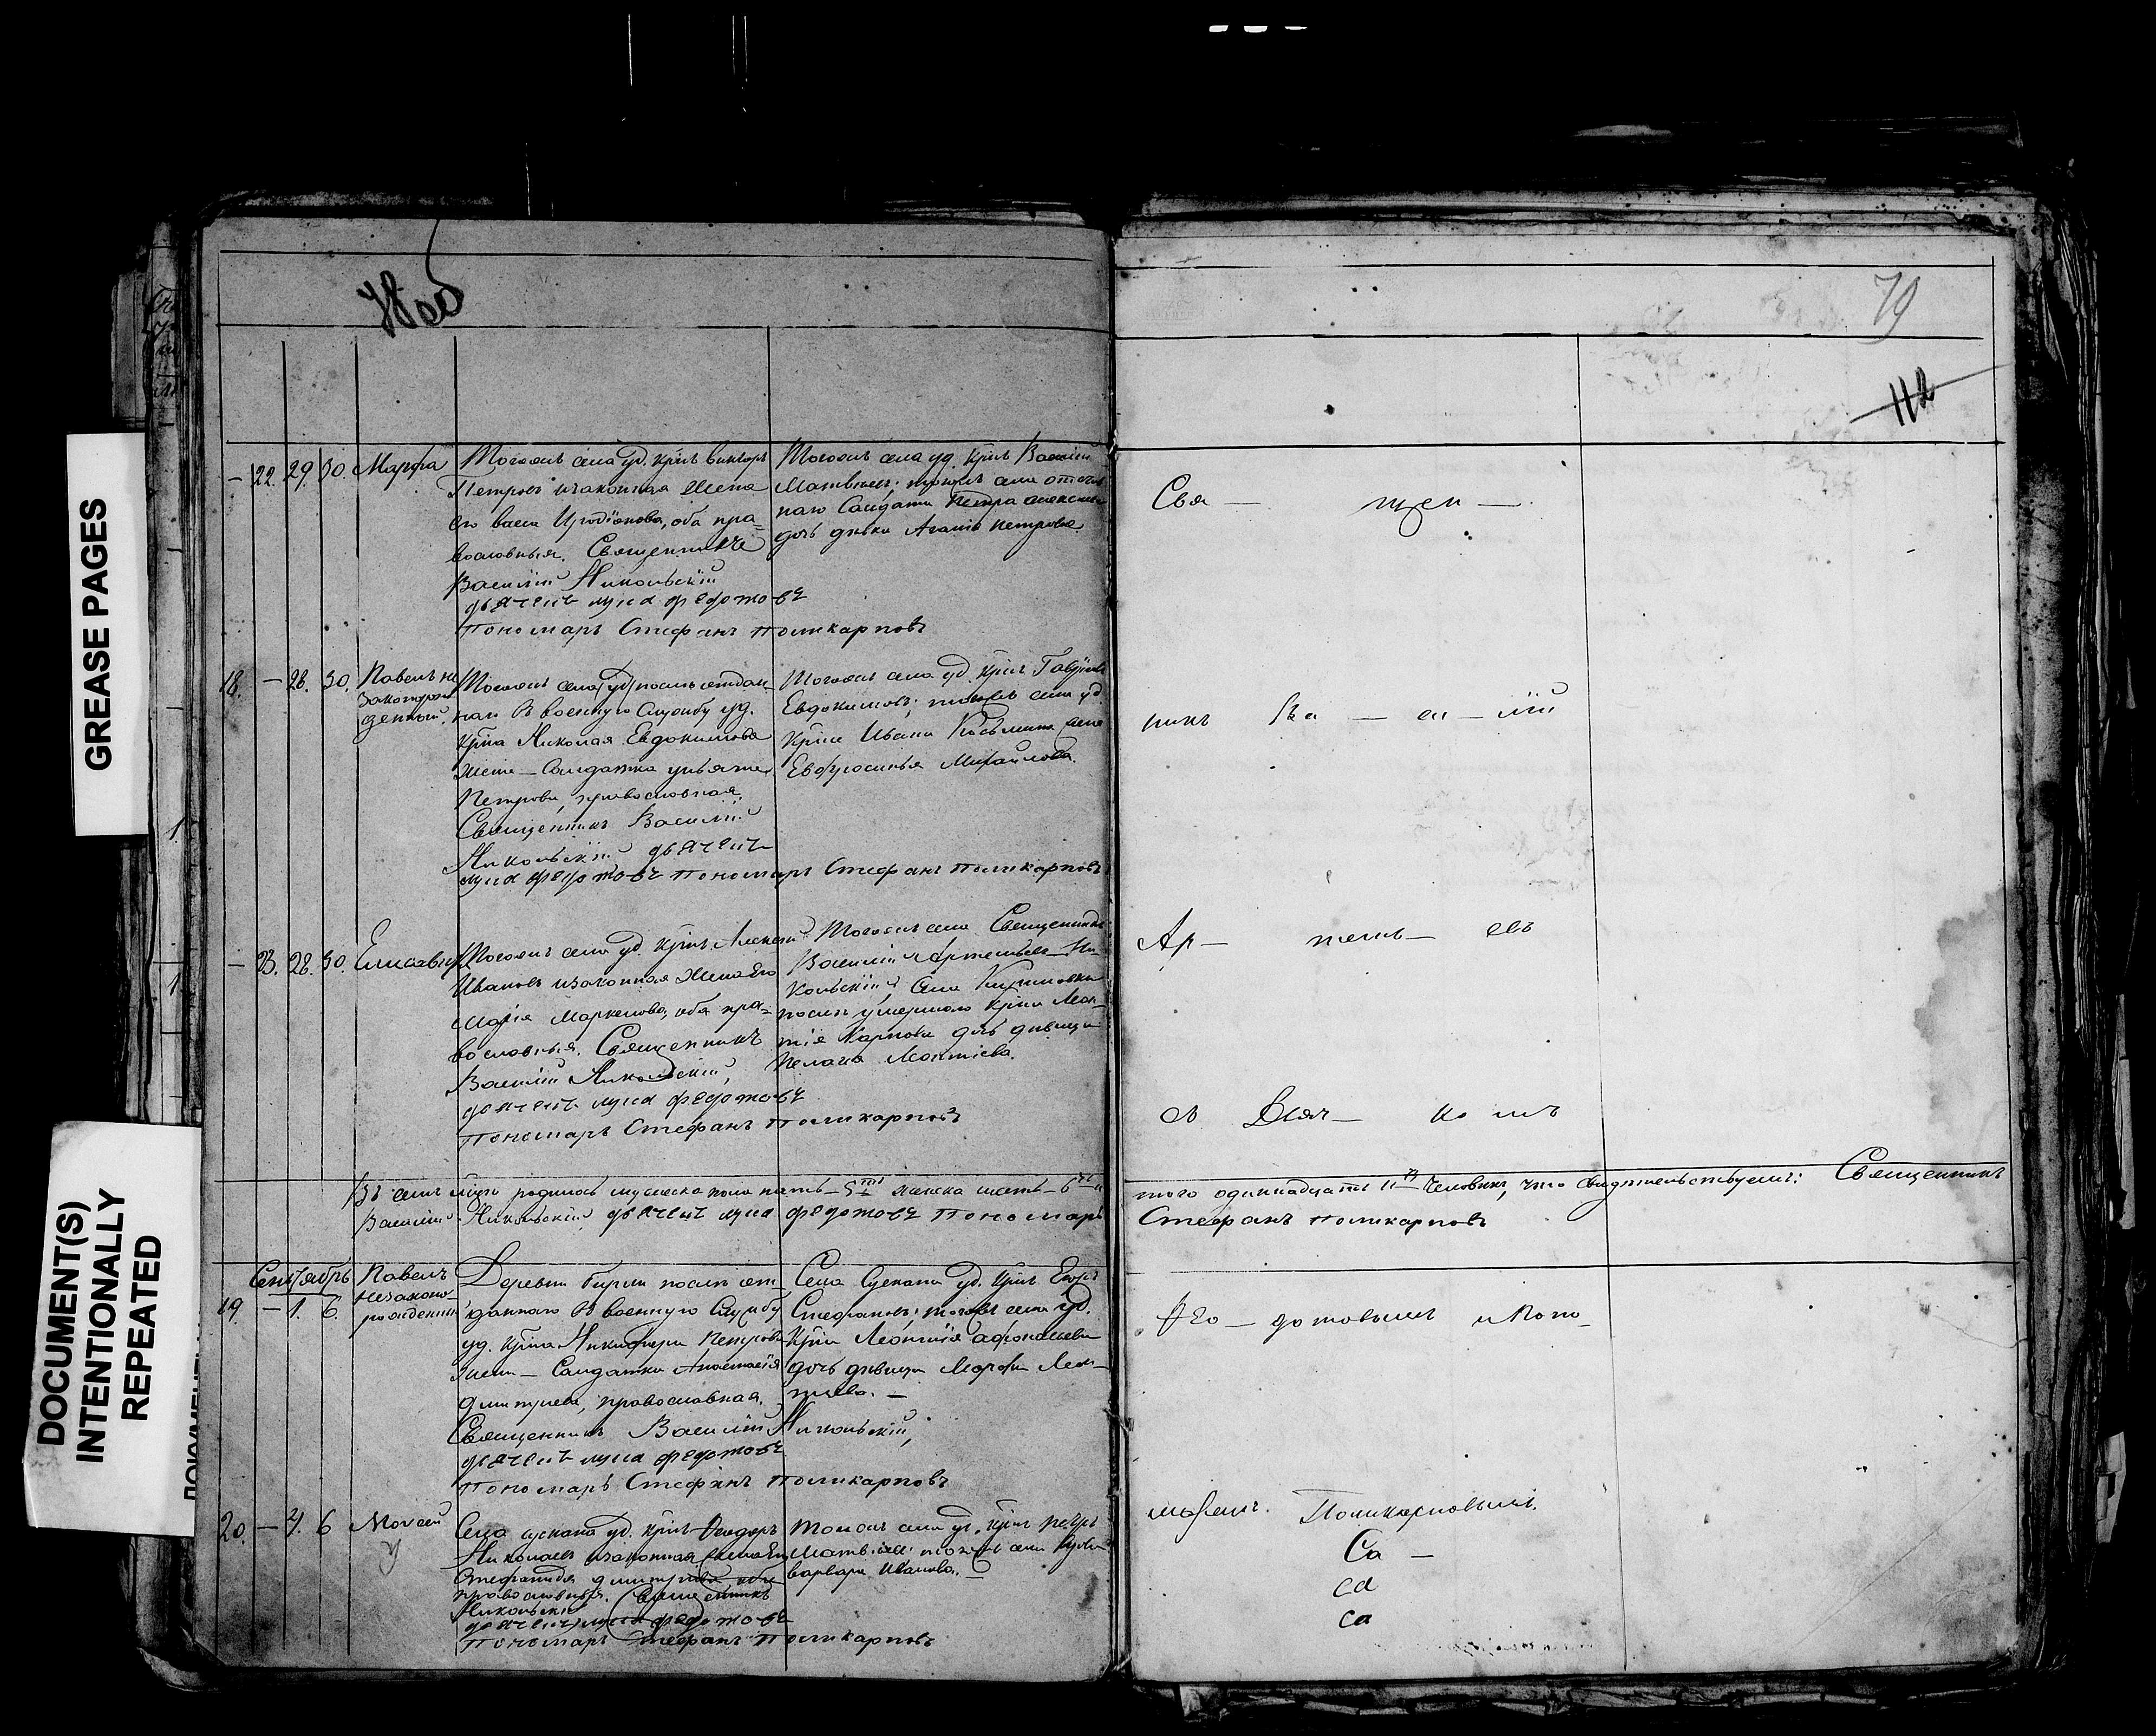 78 об
79
112
GREASE PAGES
DOCUMENT(S)
INTENTIONALLY
REPEATED
— 22. 29. 30. Марфа
Тогожъ села уд. крнъ Викторъ
Петровъ изаконная жена
его Васса Иродіонова, оба пра-
вославныя. Священникъ
Василій Никольскій
дьячекъ лука федотовъ
Пономарь Стефанъ Поликарповъ
Тогожъ села уд. крнъ Василій
Матвѣевъ; тогожъ села
Солдата Петра
дочь дѣвка Петрова
18. — 28. 30. Павелъ не
законорож
денный.
Тогожъ села уд. послѣ отдан-
наго въ военную службу уд.
крна Николая Евдокимова
жена — Солдатка Ульяна
Петрова, православная.
Священникъ Василій
Никольскій дьячекъ
лука федотовъ Пономарь Стефанъ Поликарповъ
Тогожъ села уд. крнъ Гавріилъ
Евдокимовъ; тогожъ села уд.
крна Ивана Козьмина жена
Евфросинья Михайлова.
— 23. 28. 30. Елисавета
Тогожъ села уд. крнъ Алексѣй
Ивановъ изаконная жена его
Марія Маркелова, оба пра-
вославныя. Священникъ
Василій Никольскій,
дьячекъ лука федотовъ
Пономарь Стефанъ Поликарповъ
Тогожъ села Священникъ
Василій Артемьевъ Ни-
кольскій; села
послѣ умершаго крна Леон-
тія Карпова дочь дѣвица
Пелагія Леонтіева.
Въ семъ мцѣ родилось мужеска пола пять — 5ть женска шесть — 6ть и
Василій Никольскій дьячекъ лука федотовъ Пономарь
того одиннадцать 11ть человѣкъ, что свидѣтельствуемъ: Священникъ
Стефанъ Поликарповъ
Сентябрь
19. — 1. 6. Павелъ
незаконо-
рожденный
Деревни послѣ от-
даннаго въ военную службу
уд. крна Никифора Петрова
жена — Солдатка Анастасія
Дмитріева, православная.
Священникъ Василій Никольскій,
дьячекъ лука федотовъ
Пономарь Стефанъ Поликарповъ
Села Сускана уд. крнъ Егоръ
Стефановъ; тогожъ села уд.
крна Леонтія Афонасьева
дочь дѣвица Марфа Леон-
тьева. —
20. — 4. 6 Моисей
Села сускана уд. крнъ Ѳеодоръ
Николаевъ изаконная жена его
Степанида Дмитріева, оба
православныя. Священникъ
Никольскій
дьячекъ лука федотовъ
Пономарь Стефанъ Поликарповъ
Тогожъ села уд. крнъ Петръ
Матвѣевъ; тогожъ села
варвара Иванова. —
Свя — щен —
никъ Ва — си — лій
Ар — темь — евъ
съ Дьяч — ко мъ
Ѳео — дотовымъ и Поно —
маремъ. Поликарповымъ.
Са —
са
са